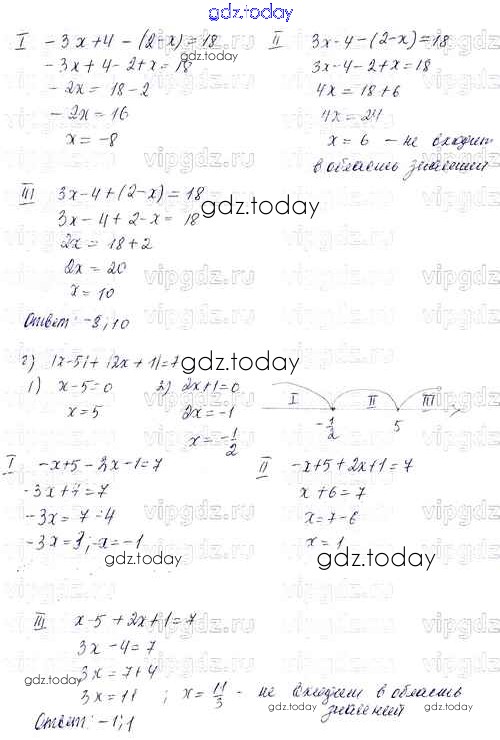 gdz.today
I -3x+4-(2-x)=18
-3x+4-2+x=18
-2x=18-2
-2x=16
x=-8
II 3x-4-(2-x)=18
3x-4-2+x=18
4x=18+6
4x=24
x=6 - не входит
в область значений
III 3x-4+(2-x)=18
3x-4+2-x=18
2x=18+2
2x=20
x=10
gdz.today
Ответ: -8; 10
г) |x-5|+|2x+1|=7
gdz.today
1) x-5=0
x=5
2) 2x+1=0
2x=-1
x=-1/2
I II III
-1/2 5
I -x+5-2x-1=7
-3x+4=7
-3x=7-4
-3x=3; x=-1
II -x+5+2x+1=7
x+6=7
x=7-6
x=1
gdz.today
gdz.today
III x-5+2x+1=7
3x-4=7
3x=7+4
3x=11 ; x=11/3 - не входит в область
значений
Ответ: -1; 1
gdz.today
gdz.today
vipgdz.ru